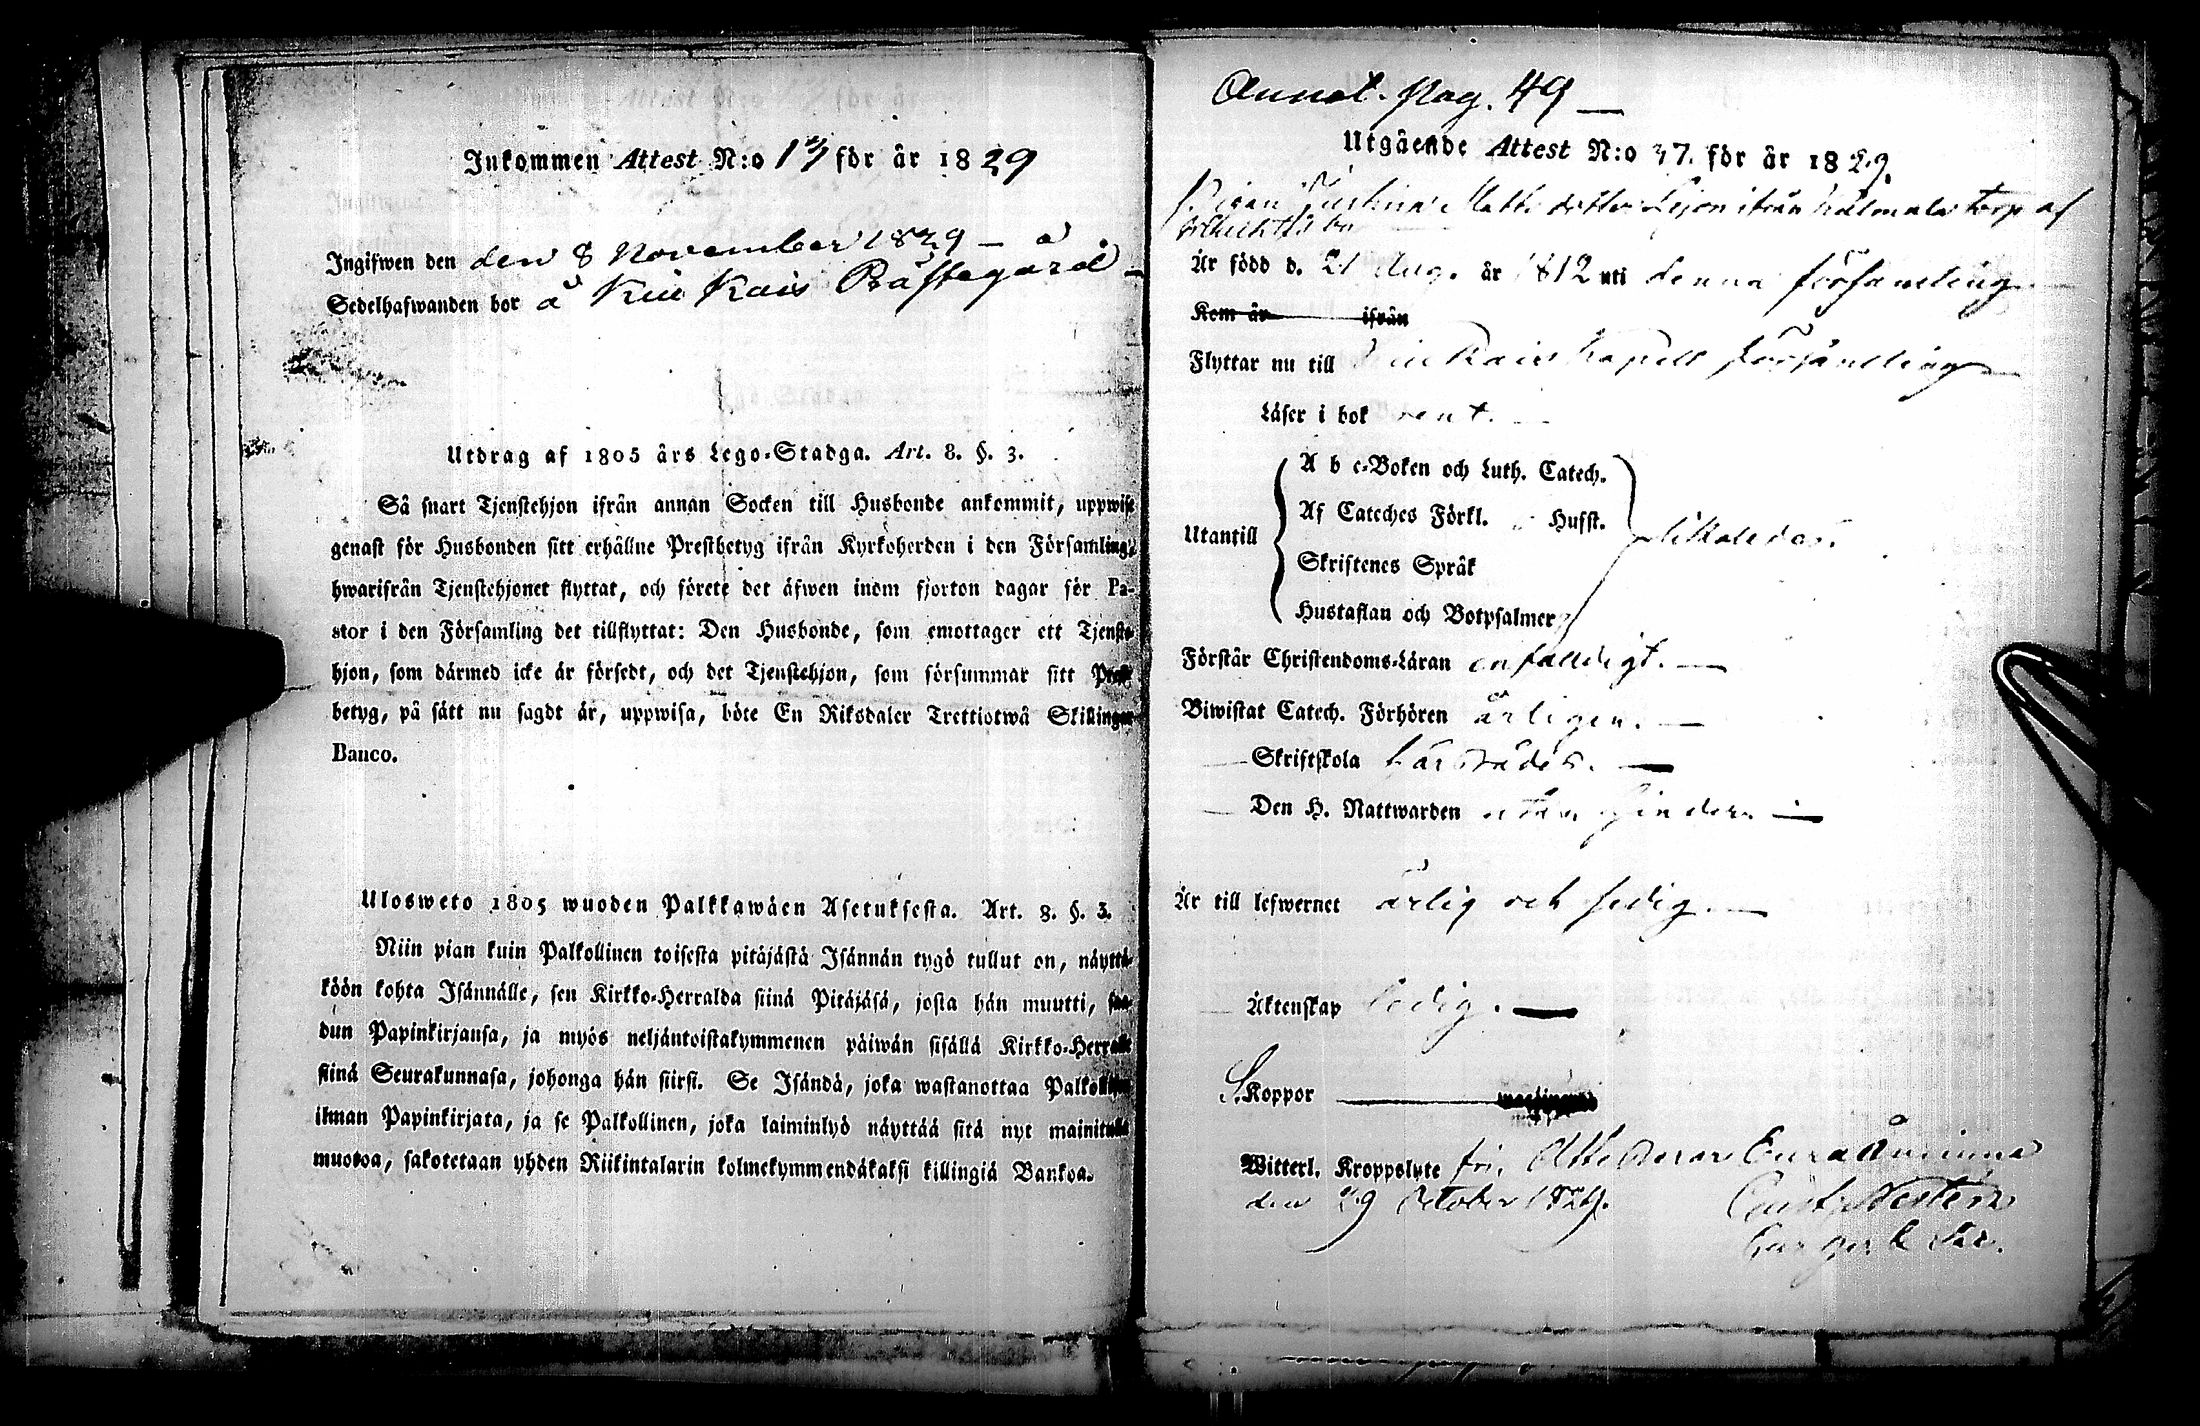 Inkommen Attest N:o 17 för år 1829
Ingifwen den den 8 November 1829 – à
Sedelhafwanden bor à Kiukais Prästegård –
Utdrag af 1805 års Lego-Stadga. Art. 8. §. 3.
Så snart Tjenstehjon ifrån annan Socken till Husbonde ankommit, uppwise
genast för Husbonden sitt erhållne Prestbetyg ifrån Kyrkoherden i den Församling,
hwarifrån Tjenstehjonet flyttat, och förete det äfwen inom fjorton dagar för Pa-
stor i den Församling det tillflyttat: Den Husbonde, som emottager ett Tjenste-
hjon, som därmed icke är försedt, och det Tjenstehjon, som försummar sitt Prest-
betyg, på sätt nu sagdt är, uppwisa, böte En Riksdaler Trettiotwå Skillingar
Banco.
Ulosweto 1805 wuoden Palkkawäen Asetuksesta. Art. 8. §. 3.
Niin pian kuin Palkollinen toisesta pitäjästä Isännän tygö tullut on, näyttä-
köön kohta Isännälle, sen Kirkko-Herralda siinä Pitäjäsä, josta hän muutti, saa-
dun Papinkirjansa, ja myös neljäntoistakymmenen päiwän sisällä Kirkko-Herralle
siinä Seurakunnasa, johonga hän siirsi. Se Isändä, joka wastanottaa Palkollisen
ilman Papinkirjata, ja se Palkollinen, joka laiminlyö näyttää sitä nyt mainitulla
muotoa, sakotetaan yhden Riikintalarin kolmekymmendäkaksi killingiä Bankoa.
Annot. pag. 49 –
Utgående Attest N:o 37. för år 1829.
Pigan Justina Matts dotter Lejon ifrån torp af
Är född d. 21 Aug. år 1812 uti denna församling
Kom år ifrån
Flyttar nu till Kiukais Kapells församling
Läser i bok rent.
A b c-Boken och Luth. Catech.
Af Cateches Förkl. o Hufst.
Utantill likaledes.
Skriftenes Språk
Hustaflan och Botpsalmer
Förstår Christendoms-Läran enfaldigt. –
Biwistat Catech. Förhören årligen. –
Skriftskola härstädes. –
Den H. Nattwarden utan hinder. –
Är till lefwernet ärlig och sedig. –
Äktenskap ledig. –
S. Koppor
Witterl. Kroppslyte fri, Attesterar Euraåminne
den 29 October 1829.